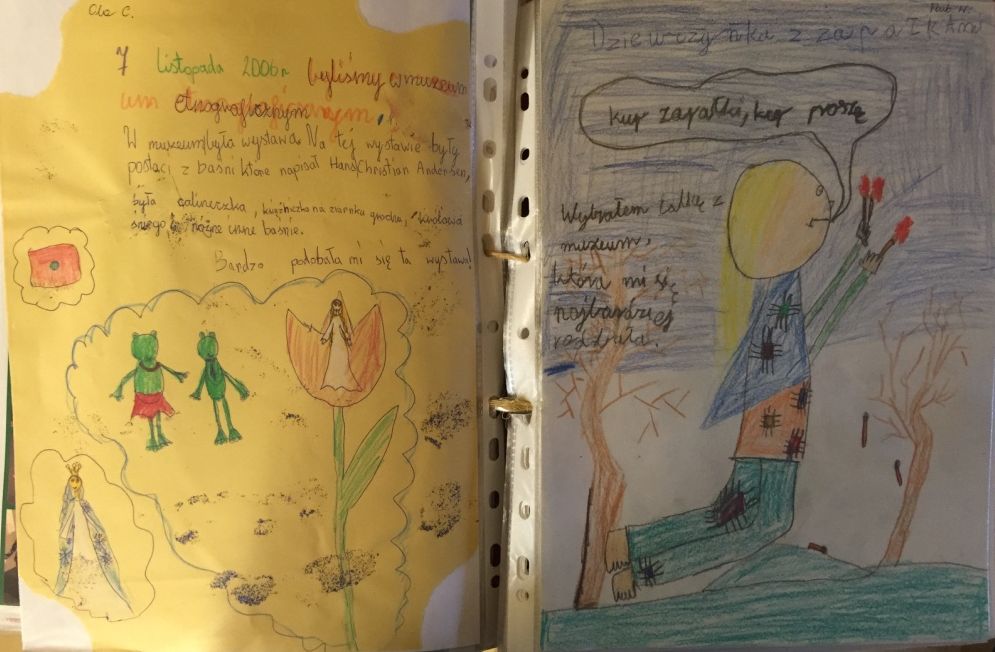 Ola C.
7 listopada 2006r byliśmy w muzeum
etnograficznym.
W muzeum była wystawa Na tej wystawie były
postaci z baśni które napisał Hans Christian Andersen,
była calineczka, księżniczka na ziarnku grochu, królowa
śniegu i różne inne baśnie.
Bardzo podobała mi się ta wystawa!
Kub N.
Dziewczynka z zapałkami
kup zapałki, kup proszę
Wybrałem lalkę z
muzeum,
która mi się
najbardziej